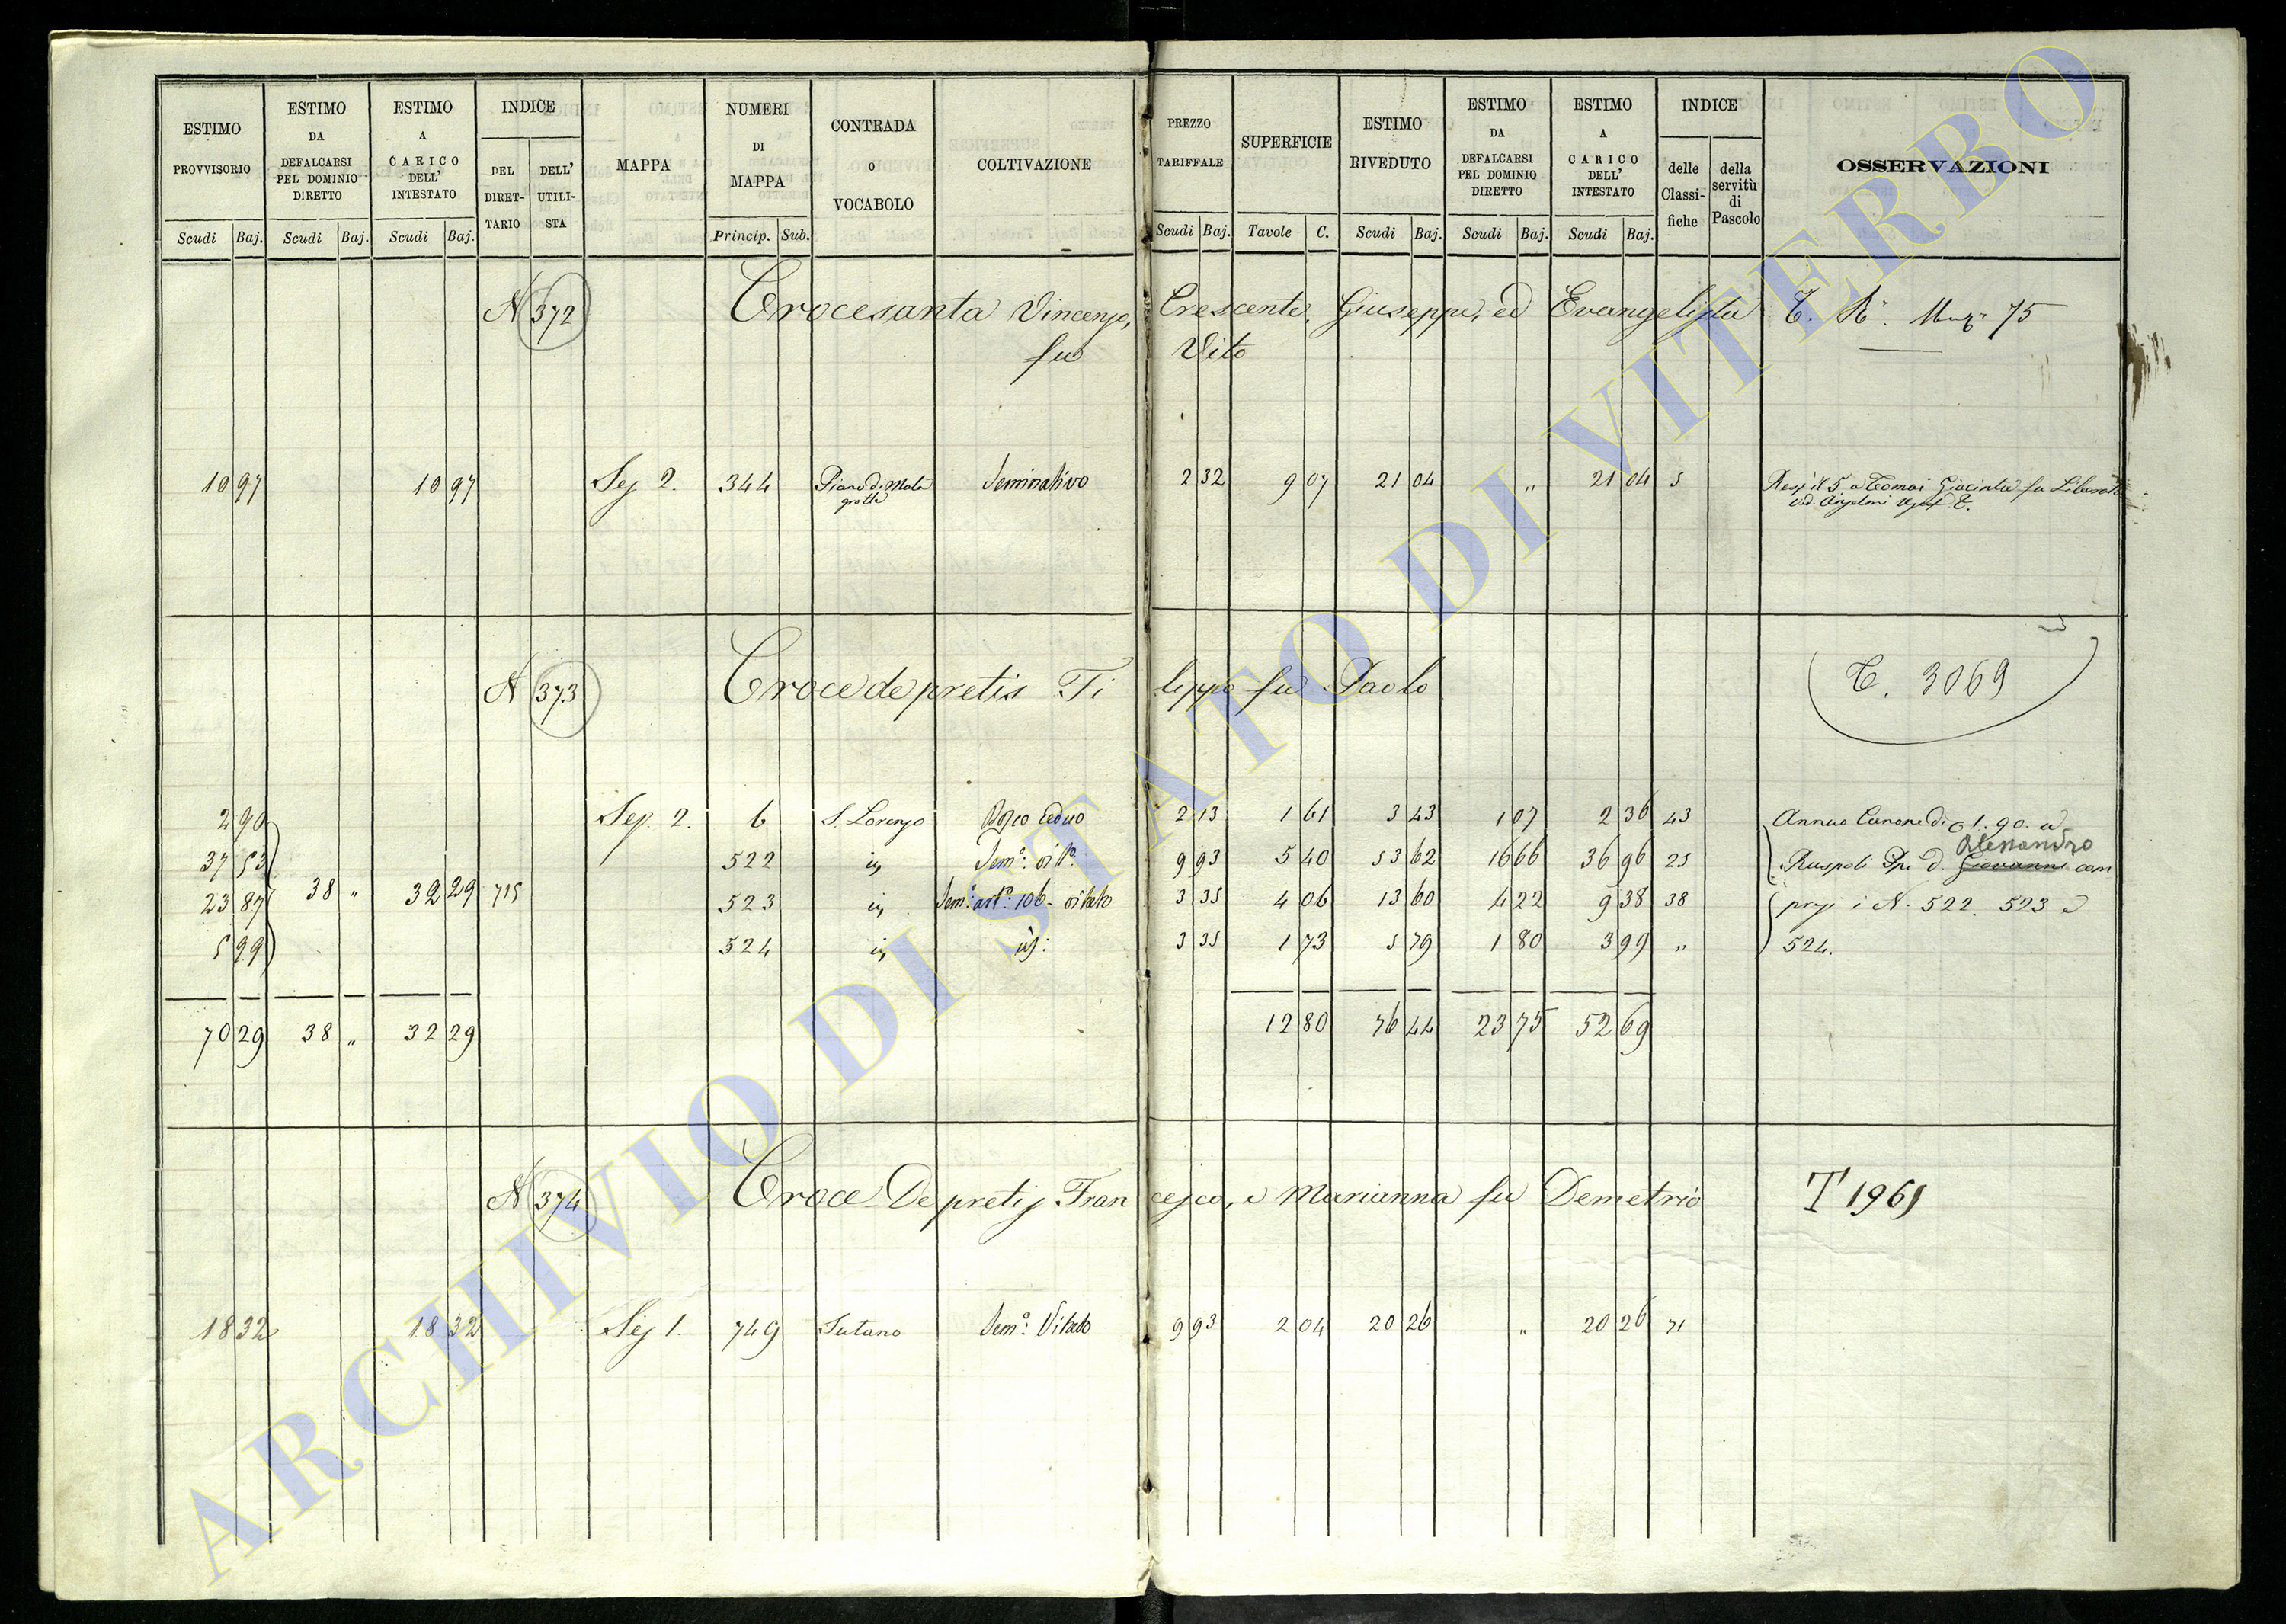 ESTIMO PROVVISORIO Scudi Baj.
ESTIMO DA DEFALCARSI PEL DOMINIO DIRETTO Scudi Baj.
ESTIMO A CARICO DELL' INTESTATO Scudi Baj.
INDICE DEL DIRET-TARIO DELL' UTILI-STA
MAPPA
NUMERI DI MAPPA Princip. Sub.
CONTRADA o VOCABOLO
COLTIVAZIONE
PREZZO TARIFFALE Scudi Baj.
SUPERFICIE Tavole C.
ESTIMO RIVEDUTO Scudi Baj.
ESTIMO DA DEFALCARSI PEL DOMINIO DIRETTO Scudi Baj.
ESTIMO A CARICO DELL' INTESTATO Scudi Baj.
INDICE delle Classi-fiche della servitù di Pascolo
OSSERVAZIONI
N 372 Crocesanta Vincenzo, Crescente, Giuseppe, ed Evangelista 75
fu Vito
10 97 10 97 Sez 2. 344 Piano di Mola Seminativo 2 32 9 07 21 04 " 21 04 5 Resp il 5 a Tomai Giacinta fu Liberato
grotte
N 373 Croce de pretis Filippo fu Paolo T. 3069
2 90 Sez. 2. 6 S. Lorenzo Bosco Ceduo 2 13 1 61 3 43 1 07 2 36 43 Annuo Canone di 1.90. a
Alessandro
37 53 522 id Sem.º vit.º 9 93 5 40 53 62 16 66 36 96 25 Ruspoli Giovanni com
23 87 38 " 32 29 715 523 id Sem.º art.º 106 - vitato 3 35 4 06 13 60 4 22 9 38 38 presi i N. 522. 523 e
5 99 524 id id: 3 35 1 73 5 79 1 80 3 99 " 524.
70 29 38 " 32 29 12 80 76 44 23 75 52 69
N 374 Croce De pretis Francesco, e Marianna fu Demetrio T 1961
18 32 18 32 Sez 1. 749 Sutano Sem.º Vitato 9 93 2 04 20 26 " 20 26 71
ARCHIVIO DI STATO DI VITERBO